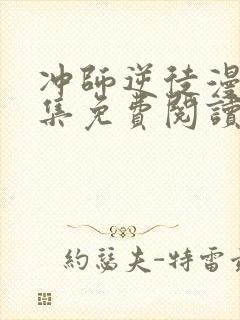 冲師逆徒漫
集免費閱讀
約瑟夫-特雷